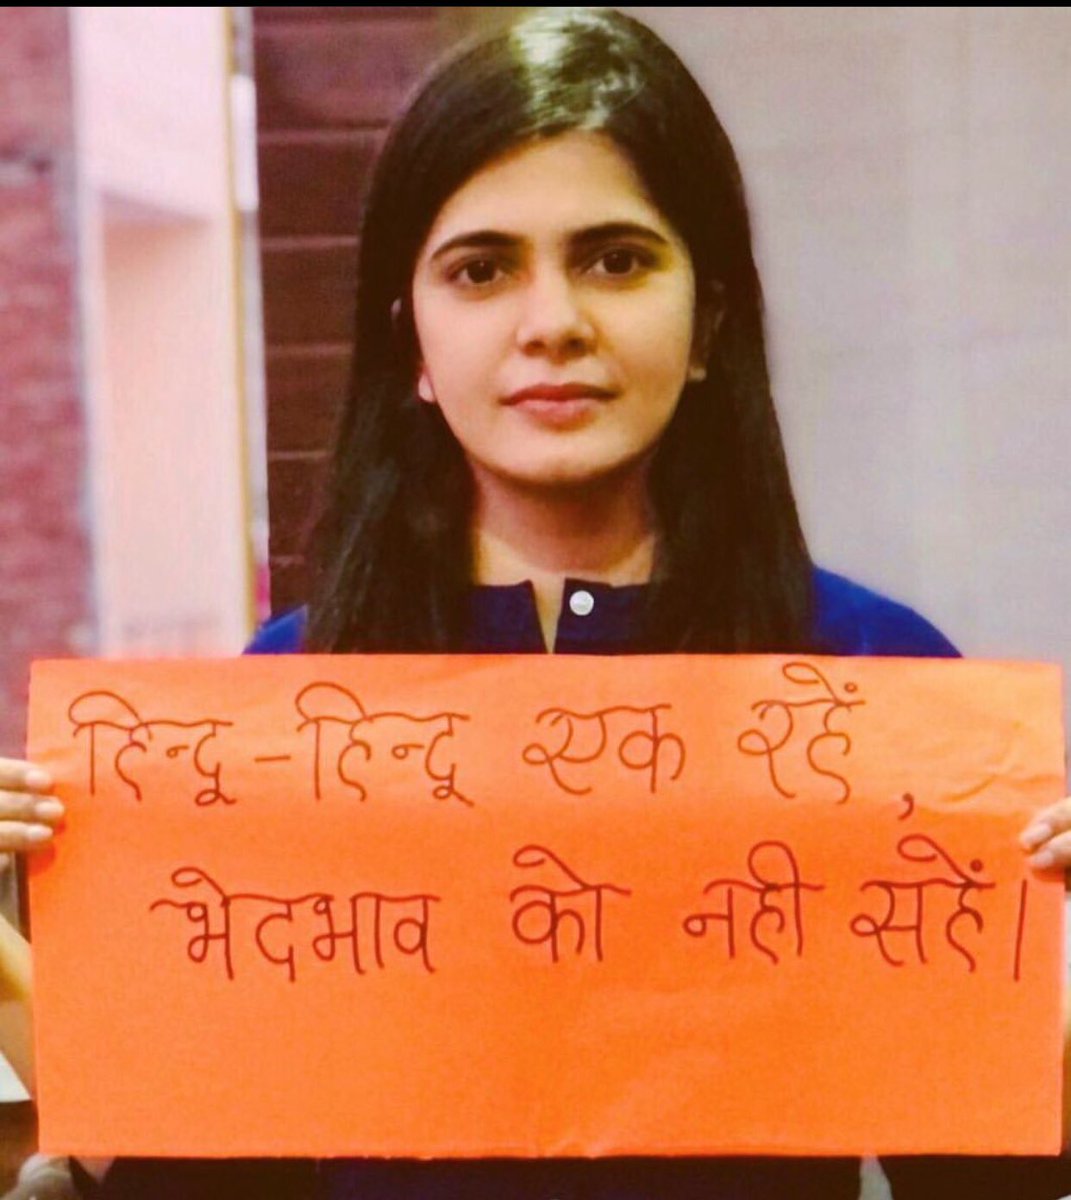 हिन्दू-हिन्दू एक रहें,
भेदभाव को नही सहें।